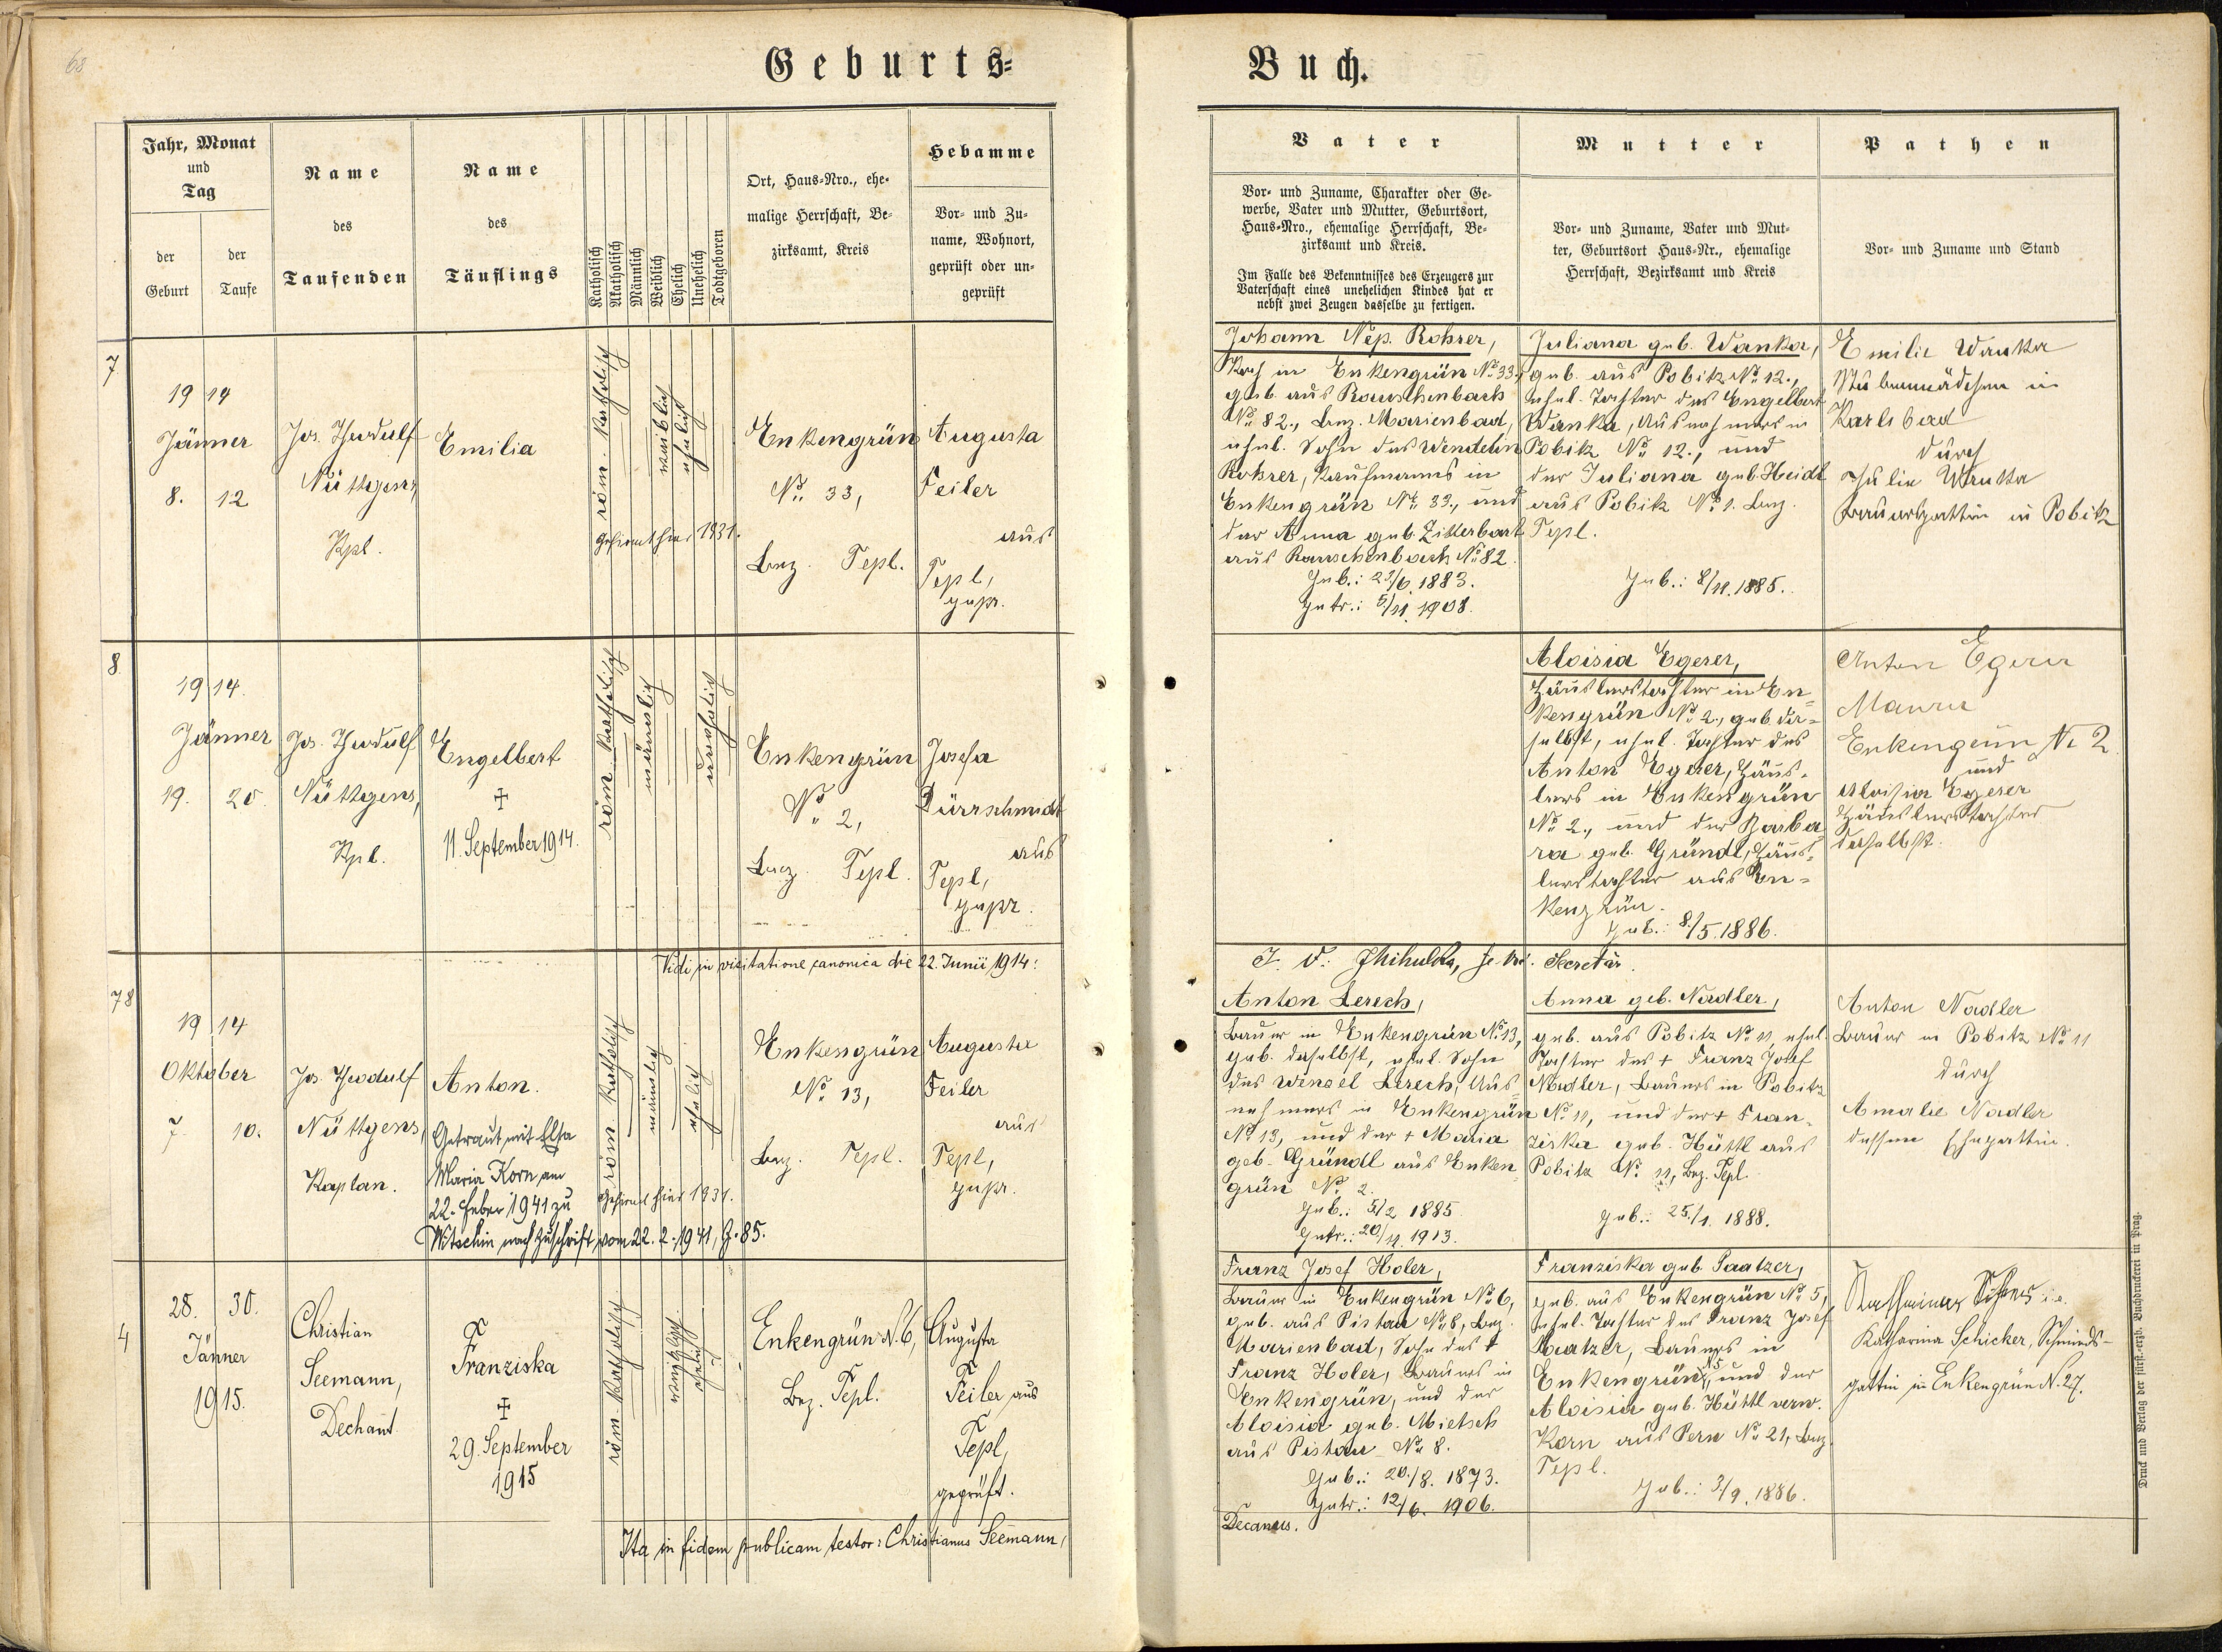 68
Geburts=
Buch.
Jahr, Monat
und
Tag
der
Geburt
der
Taufe
Name
des
Taufenden
Name
des
Täuflings
Katholisch
Akatholisch
Männlich
Weiblich
Ehelich
Unehelich
Todtgeboren
Ort, Haus-Nro., ehe-
malige Herrschaft, Be-
zirksamt, Kreis
Hebamme
Vor- und Zu-
name, Wohnort,
geprüft oder un-
geprüft
Vater
Vor- und Zuname, Charakter oder Ge-
werbe, Vater und Mutter, Geburtsort,
Haus-Nro., ehemalige Herrschaft, Be-
zirksamt und Kreis.
Im Falle des Bekenntnisses des Erzeugers zur
Vaterschaft eines unehelichen Kindes hat er
nebst zwei Zeugen dasselbe zu fertigen.
Mutter
Vor- und Zuname, Vater und Mut-
ter, Geburtsort Haus-Nr., ehemalige
Herrschaft, Bezirksamt und Kreis
Pathen
Vor- und Zuname und Stand
7
1914
Jänner
8. 12
Jos. Theodulf
Nüttgens,
Kpl.
Emilia
röm. katholisch
weiblich
ehelich
Gefirmt hier 1931.
Enkengrün
No. 33,
Bez. Tepl.
Augusta
Feiler
aus
Tepl,
gepr.
Johann Nep. Rohrer,
Koch in Enkengrün No. 33.,
geb. aus Rauschenbach
No. 82., Bez. Marienbad,
ehel. Sohn des Wendelin
Rohrer, Kaufmanns in
Enkengrün No. 33., und
der Anna geb. Zitterbart
aus Rauschenbach No. 82.
Geb.: 23/6. 1883.
Getr.: 5/11. 1908.
Juliana geb. Wanka,
geb. aus Pobitz No. 12.,
ehel. Tochter des Engelbert
Wanka, Ausnehmers in
Pobitz No. 12., und
der Juliana geb. Heidl
aus Pobitz No. 1. Bez.
Tepl.
Geb.: 8/11. 1885.
Emilie Wanka
Stubenmädchen in
Karlsbad
durch
Julie Wanka
Bauersgattin in Pobitz
8.
1914.
Jänner
19. 20.
Jos. Theodulf
Nüttgens,
Kpl.
Engelbert
†
11. September 1914.
röm. katholisch
männlich
unehelich
Enkengrün
No. 2,
Bez. Tepl.
Josefa
Dürrschmidt
aus
Tepl,
gepr.
Aloisia Egerer,
Häuslerstochter in En-
kengrün No. 2., geb. da-
selbst, ehel. Tochter des
Anton Egerer, Häus-
lers in Enkengrün
No. 2., und der Barba
ra geb. Gründl, Häus-
lerstochter aus En-
kengrün.
Geb.: 8/5. 1886.
Anton Egerer
Maurer
Enkengrün No 2.
und
Aloisia Egerer
Häuslerstochter
daselbst.
Vidi in visitatione canonica die 22. Junii 1914:
Secretär.
78
1914
Oktober
7. 10.
Jos. Theodulf
Nüttgens,
Kaplan.
Anton.
Getraut mit Elsa
Maria Korn am
22. Feber 1941 zu
Witschin nach Zuschrift vom 22. 2. 1941, Z. 85.
röm. katholisch
männlich
ehelich
Gefirmt hier 1931.
Enkengrün
No. 13,
Bez. Tepl.
Augusta
Feiler
aus
Tepl,
gepr.
Anton Lerech,
Bauer in Enkengrün No. 13,
geb. daselbst, ehel. Sohn
des Wenzel Lerech, Aus
nehmers in Enkengrün
No. 13, und der † Maria
geb. Gründl aus Enken
grün No. 2.
Geb.: 5/2 1885.
Getr.: 20/11. 1913.
Anna geb. Nadler,
geb. aus Pobitz No. 11, ehel.
Tochter des † Franz Josef
Nadler, Bauers in Pobitz
No. 11, und der † Fran-
ziska geb. Hüttl aus
Pobitz No. 11, Bez. Tepl.
Geb.: 25./1. 1888.
Anton Nadler
Bauer in Pobitz No 11
durch
Amalie Nadler
dessen Ehegattin.
4
28. 30.
Jänner
1915.
Christian
Seemann,
Dechant
Franziska
†
29. September
1915
röm. katholisch
weiblich
ehelich
Enkengrün N. 6,
Bez. Tepl.
Augusta
Feiler aus
Tepl,
geprüft.
Franz Josef Holer,
Bauer in Enkengrün No. 6,
geb. aus Pistau No. 8, Bez.
Marienbad, Sohn des †
Franz Holer, Bauers in
Enkengrün, und der
Aloisia geb. Mietsch
aus Pistau No. 8.
Geb.: 20./8. 1873.
Getr.: 12/6. 1906.
Franziska geb. Saatzer,
geb. aus Enkengrün No. 5,
ehel. Tochter des Franz Josef
Saatzer, Bauers in
Enkengrün No 5, und der
Aloisia geb. Hüttl verw.
Korn aus Pern No. 21, Bez.
Tepl.
Geb.: 3/9. 1886.
Katharina Schicker, Schmieds-
gattin in Enkengrün N. 27.
Ita in fidem publicam testor: Christianus Seemann,
Decanus.
Druck und Verlag der fürst-erzb. Buchdruckerei in Prag.